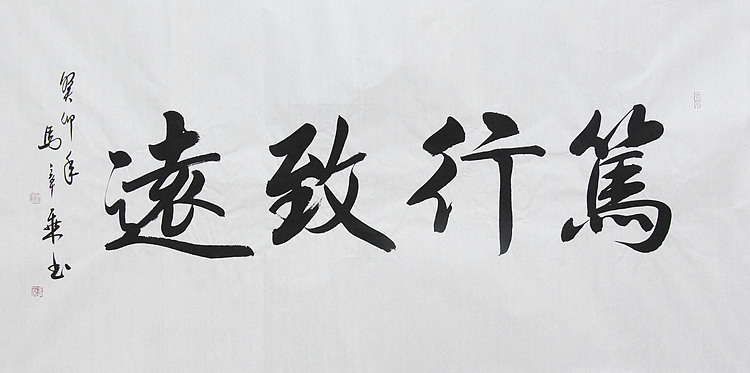 篤行致遠
癸卯年
馬章乘书